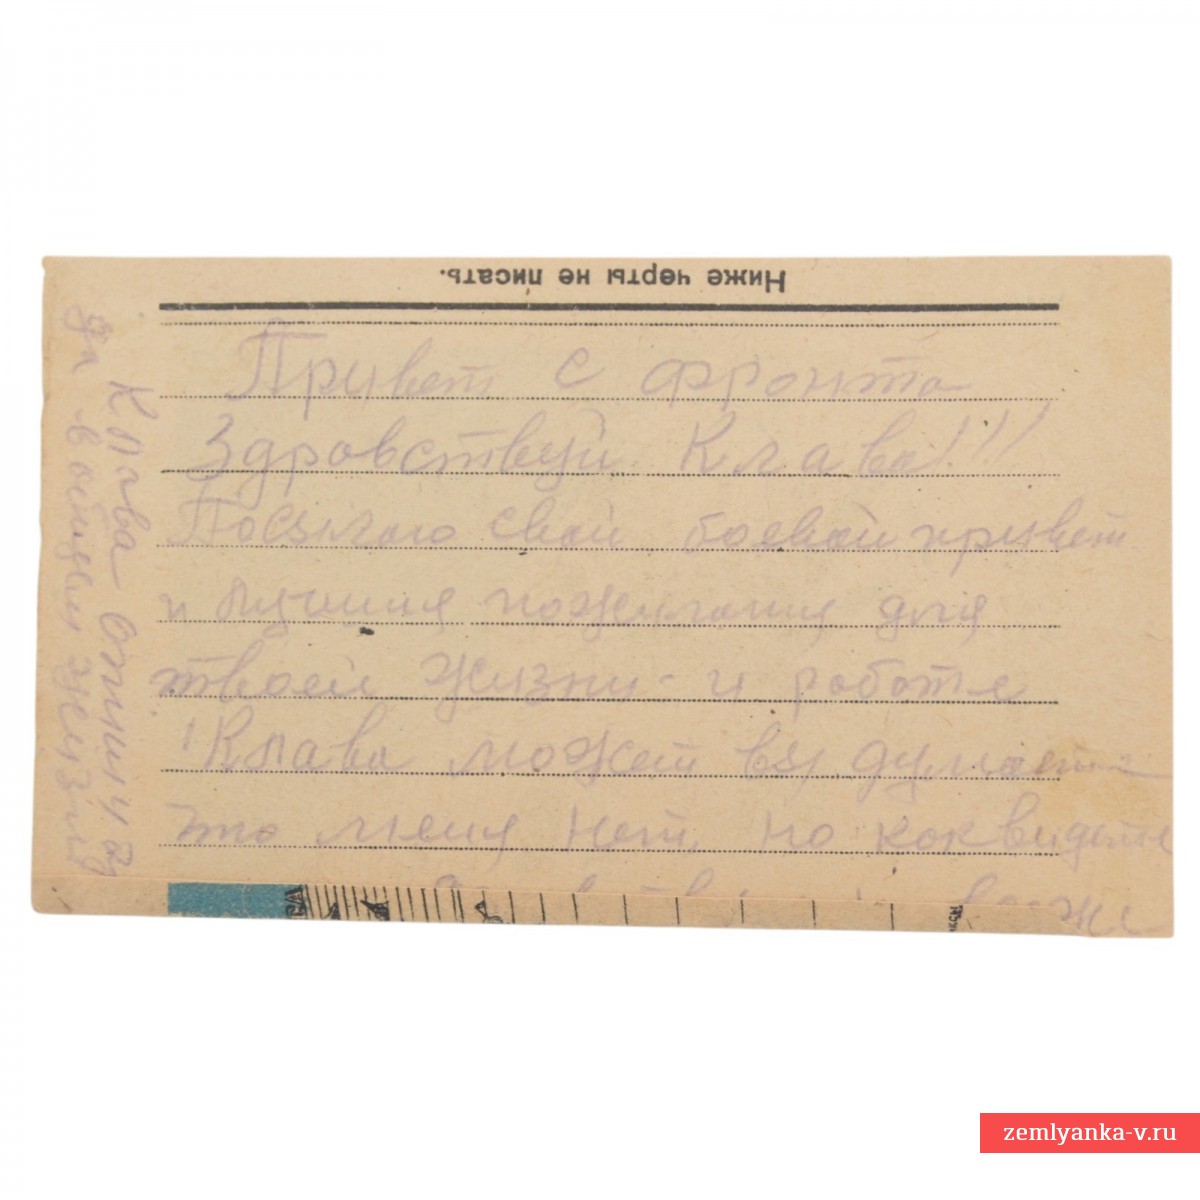 Ниже черты не писать.
Привет с фронта
Здравствуй Клава!!!
Посылаю свой боевой привет
и лучшия пожелания для
твоей жизни и работе
Клава может вы думаете
что меня нет, но как видете
Клава опиши
в
жизни
zemlyanka-v.ru